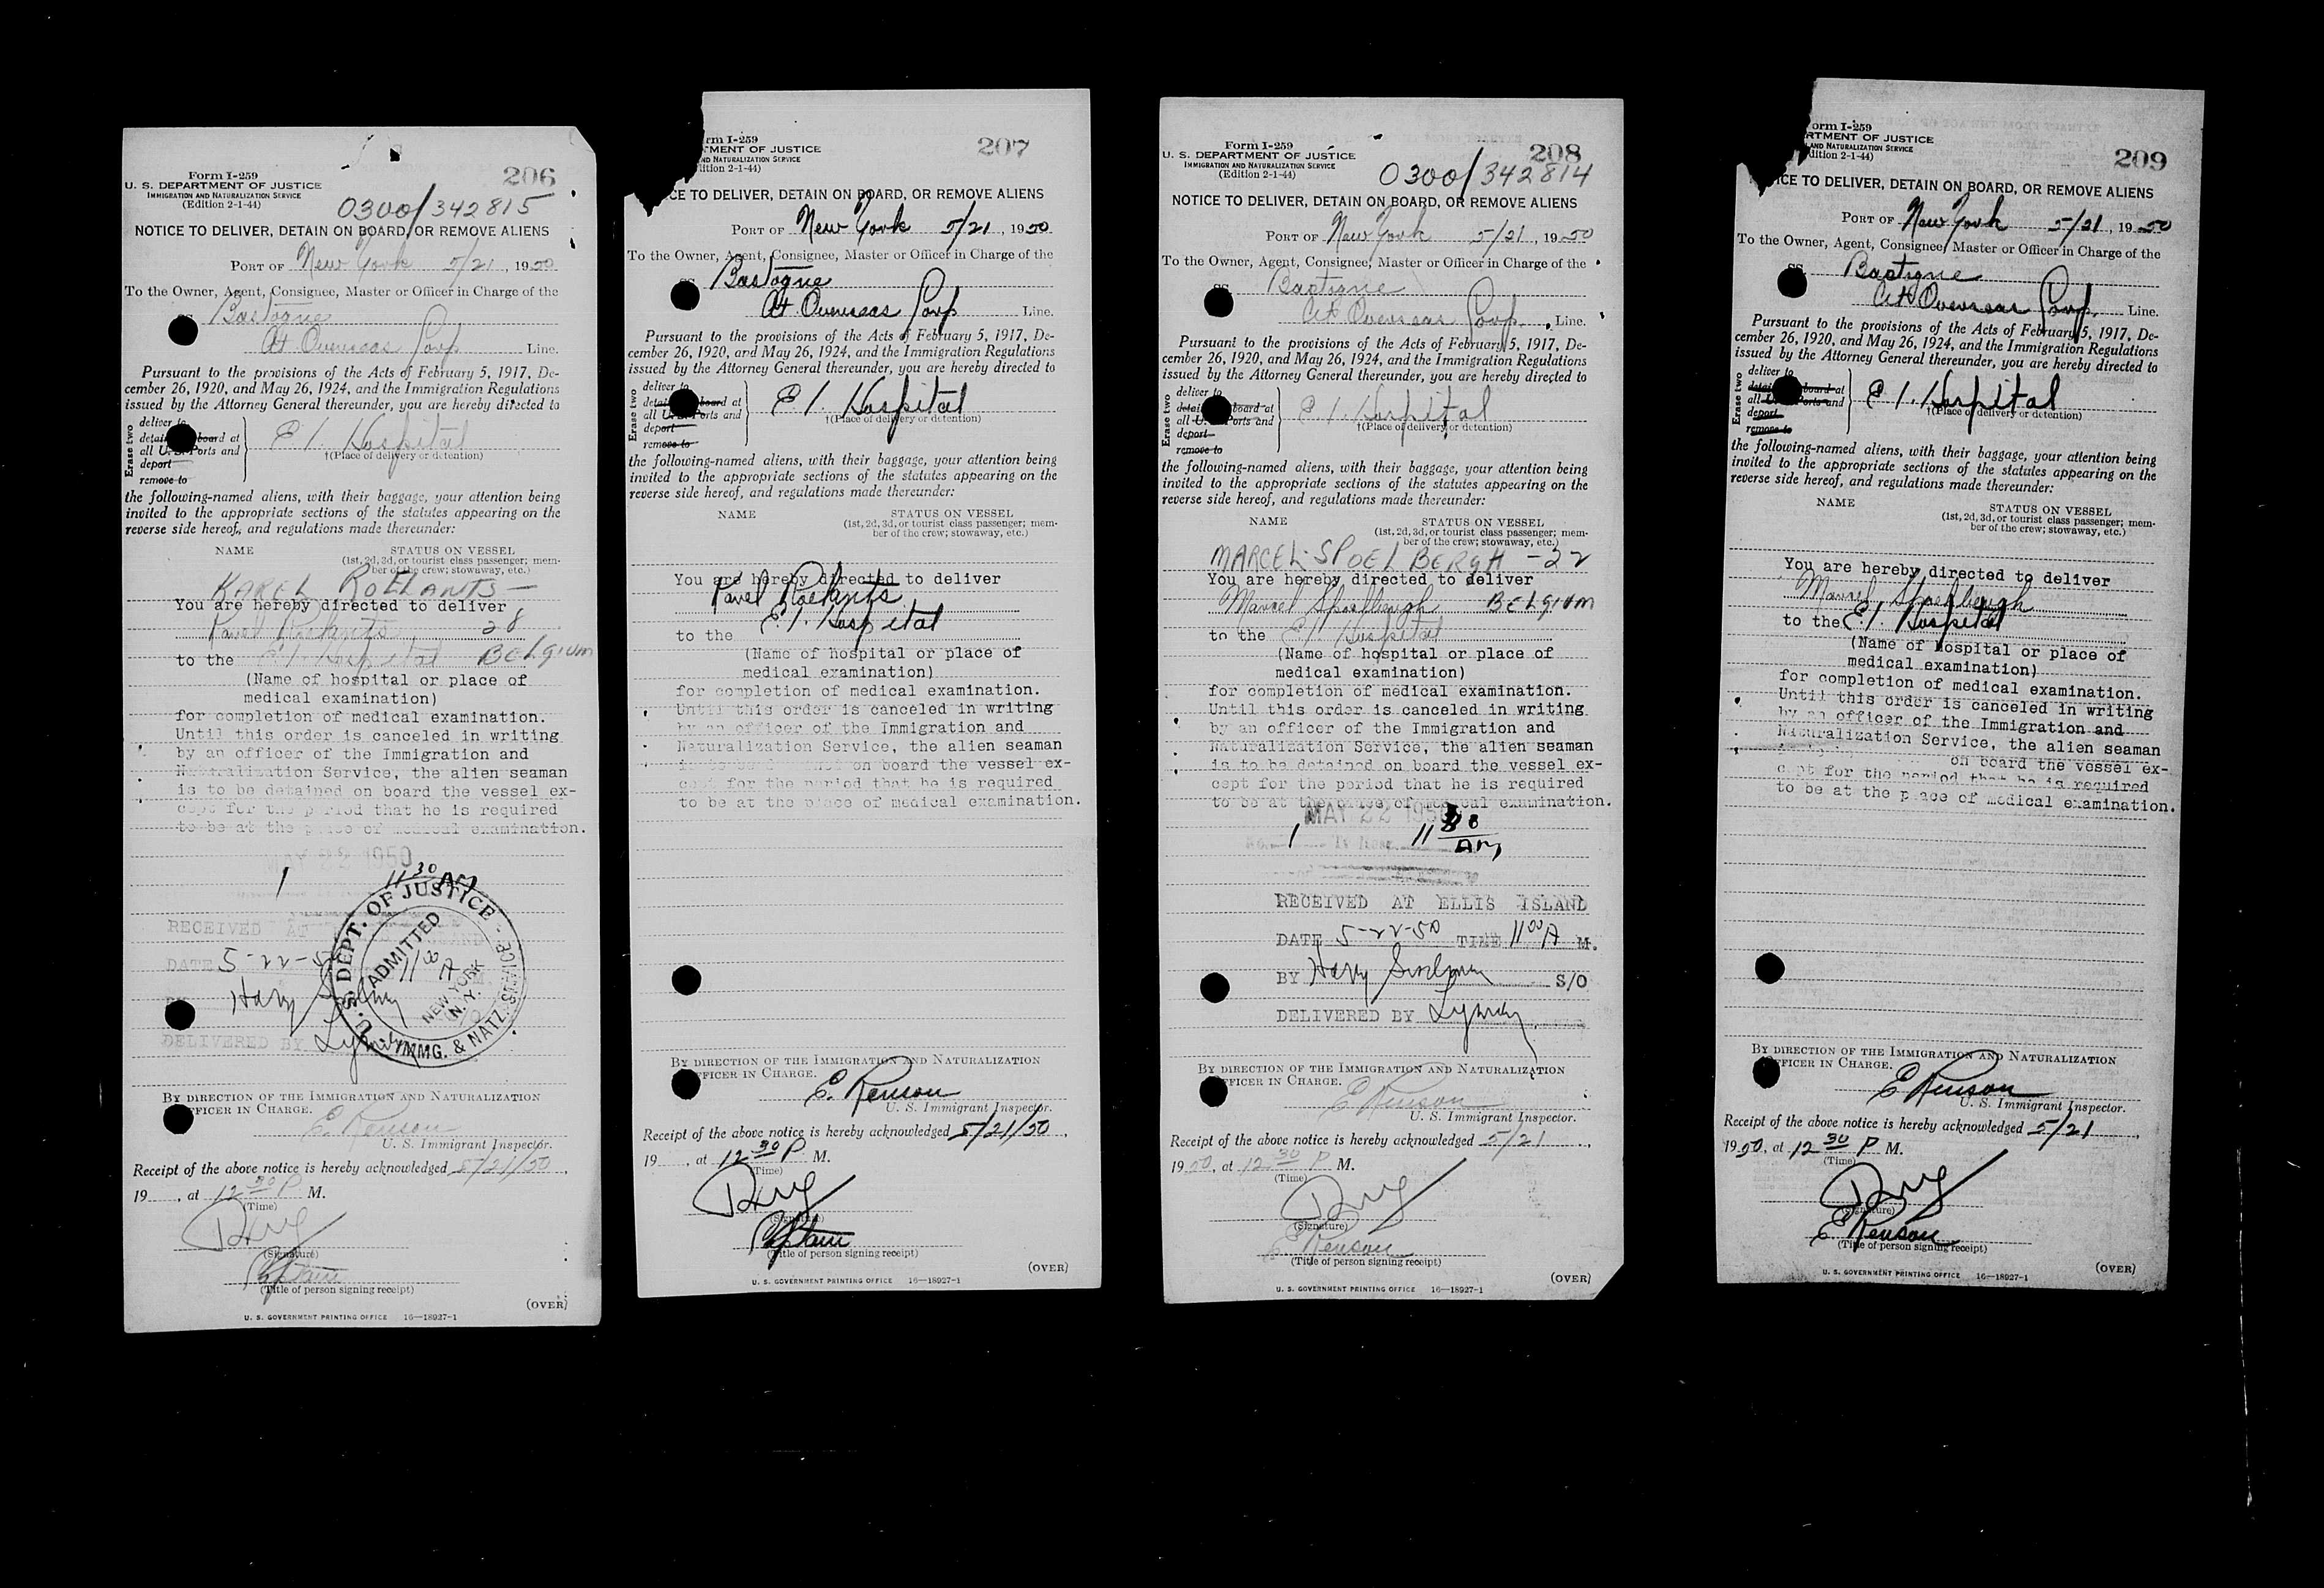 206
Form I-259
U. S. DEPARTMENT OF JUSTICE
IMMIGRATION AND NATURALIZATION SERVICE
(Edition 2-1-44)
0300/342815
NOTICE TO DELIVER, DETAIN ON BOARD, OR REMOVE ALIENS
PORT OF New York 5/21, 1950
To the Owner, Agent, Consignee, Master or Officer in Charge of the
SS Bastogne
At Overseas Corp Line.
Pursuant to the provisions of the Acts of February 5, 1917, De-
cember 26, 1920, and May 26, 1924, and the Immigration Regulations
issued by the Attorney General thereunder, you are hereby directed to
Erase two
deliver to
detain board at
all U. S. Ports and
deport
remove to
E I. Hospital
†(Place of delivery or detention)
the following-named aliens, with their baggage, your attention being
invited to the appropriate sections of the statutes appearing on the
reverse side hereof, and regulations made thereunder:
NAME STATUS ON VESSEL
(1st, 2d, 3d, or tourist class passenger; mem-
ber of the crew; stowaway, etc.)
KAREL ROELANTS —
You are hereby directed to deliver
Karel Roelants 28
to the E.I. Hospital BELGIUM
(Name of hospital or place of
medical examination)
for completion of medical examination.
Until this order is canceled in writing
by an officer of the Immigration and
Naturalization Service, the alien seaman
is to be detained on board the vessel ex-
cept for the period that he is required
to be at the place of medical examination.
MAY 22 1950
1 11 30 AM
RECEIVED AT ISLAND
DATE 5-22-5
BY Harry
DELIVERED BY
U. S. DEPT. OF JUSTICE - IMMG. & NATZ. SERVICE
ADMITTED
11 00 A
NEW YORK
N. Y.
BY DIRECTION OF THE IMMIGRATION AND NATURALIZATION
OFFICER IN CHARGE.
E. Renson
U. S. Immigrant Inspector.
Receipt of the above notice is hereby acknowledged 5/21/50,
19 , at 12 30 P M.
(Time)
(Signature)
Captain
(Title of person signing receipt)
(OVER)
U. S. GOVERNMENT PRINTING OFFICE 16—18927-1
207
rm I-259
TMENT OF JUSTICE
ND NATURALIZATION SERVICE
ition 2-1-44)
ICE TO DELIVER, DETAIN ON BOARD, OR REMOVE ALIENS
PORT OF New York 5/21, 1950
To the Owner, Agent, Consignee, Master or Officer in Charge of the
SS Bastogne
At Overseas Corp Line.
Pursuant to the provisions of the Acts of February 5, 1917, De-
cember 26, 1920, and May 26, 1924, and the Immigration Regulations
issued by the Attorney General thereunder, you are hereby directed to
Erase two
deliver to
detain board at
all U. S. Ports and
deport
remove to
E I. Hospital
†(Place of delivery or detention)
the following-named aliens, with their baggage, your attention being
invited to the appropriate sections of the statutes appearing on the
reverse side hereof, and regulations made thereunder:
NAME STATUS ON VESSEL
(1st, 2d, 3d, or tourist class passenger; mem-
ber of the crew; stowaway, etc.)
You are hereby directed to deliver
Karel Roelants
to the E.I. Hospital
(Name of hospital or place of
medical examination)
for completion of medical examination.
Until this order is canceled in writing
by an officer of the Immigration and
Naturalization Service, the alien seaman
is to be detained on board the vessel ex-
cept for the period that he is required
to be at the place of medical examination.
BY DIRECTION OF THE IMMIGRATION AND NATURALIZATION
OFFICER IN CHARGE.
E. Renson
U. S. Immigrant Inspector.
Receipt of the above notice is hereby acknowledged 5/21/50,
19 , at 12 30 P. M.
(Time)
(Signature)
Captain
(Title of person signing receipt)
(OVER)
U. S. GOVERNMENT PRINTING OFFICE 16—18927-1
208
Form I-259
U. S. DEPARTMENT OF JUSTICE
IMMIGRATION AND NATURALIZATION SERVICE
(Edition 2-1-44)
0300/342814
NOTICE TO DELIVER, DETAIN ON BOARD, OR REMOVE ALIENS
PORT OF New York 5/21, 1950
To the Owner, Agent, Consignee, Master or Officer in Charge of the
SS Bastogne
At Overseas Corp. Line.
Pursuant to the provisions of the Acts of February 5, 1917, De-
cember 26, 1920, and May 26, 1924, and the Immigration Regulations
issued by the Attorney General thereunder, you are hereby directed to
Erase two
deliver to
detain board at
all U. S. Ports and
deport
remove to
E I. Hospital
†(Place of delivery or detention)
the following-named aliens, with their baggage, your attention being
invited to the appropriate sections of the statutes appearing on the
reverse side hereof, and regulations made thereunder:
NAME STATUS ON VESSEL
(1st, 2d, 3d, or tourist class passenger; mem-
ber of the crew; stowaway, etc.)
MARCEL SPOELBERGH - 22
You are hereby directed to deliver
Marcel Spoelbergh BELGIUM
to the E.I. Hospital
(Name of hospital or place of
medical examination)
for completion of medical examination.
Until this order is canceled in writing
by an officer of the Immigration and
Naturalization Service, the alien seaman
is to be detained on board the vessel ex-
cept for the period that he is required
to be at the place of medical examination.
MAY 22 1950
1 11 AM
RECEIVED AT ELLIS ISLAND
DATE 5-22-50 TIME 11 00 A M.
BY Harry S/O
DELIVERED BY
BY DIRECTION OF THE IMMIGRATION AND NATURALIZATION
OFFICER IN CHARGE.
E Renson
U. S. Immigrant Inspector.
Receipt of the above notice is hereby acknowledged 5/21,
1950, at 12 30 P M.
(Time)
(Signature)
E Renson
(Title of person signing receipt)
(OVER)
U. S. GOVERNMENT PRINTING OFFICE 16—18927-1
209
orm I-259
RTMENT OF JUSTICE
AND NATURALIZATION SERVICE
dition 2-1-44)
ICE TO DELIVER, DETAIN ON BOARD, OR REMOVE ALIENS
PORT OF New York 5/21, 1950
To the Owner, Agent, Consignee, Master or Officer in Charge of the
SS Bastogne
At Overseas Corp. Line.
Pursuant to the provisions of the Acts of February 5, 1917, De-
cember 26, 1920, and May 26, 1924, and the Immigration Regulations
issued by the Attorney General thereunder, you are hereby directed to
Erase two
deliver to
detain board at
all U. S. Ports and
deport
remove to
E I. Hospital
†(Place of delivery or detention)
the following-named aliens, with their baggage, your attention being
invited to the appropriate sections of the statutes appearing on the
reverse side hereof, and regulations made thereunder:
NAME STATUS ON VESSEL
(1st, 2d, 3d, or tourist class passenger; mem-
ber of the crew; stowaway, etc.)
You are hereby directed to deliver
Marcel Spoelbergh
to the E.I. Hospital
(Name of hospital or place of
medical examination)
for completion of medical examination.
Until this order is canceled in writing
by an officer of the Immigration and
Naturalization Service, the alien seaman
on board the vessel ex-
cept for the period that he is required
to be at the place of medical examination.
BY DIRECTION OF THE IMMIGRATION AND NATURALIZATION
OFFICER IN CHARGE.
E Renson
U. S. Immigrant Inspector.
Receipt of the above notice is hereby acknowledged 5/21,
1950, at 12 30 P M.
(Time)
(Signature)
E Renson
(Title of person signing receipt)
(OVER)
U. S. GOVERNMENT PRINTING OFFICE 16—18927-1